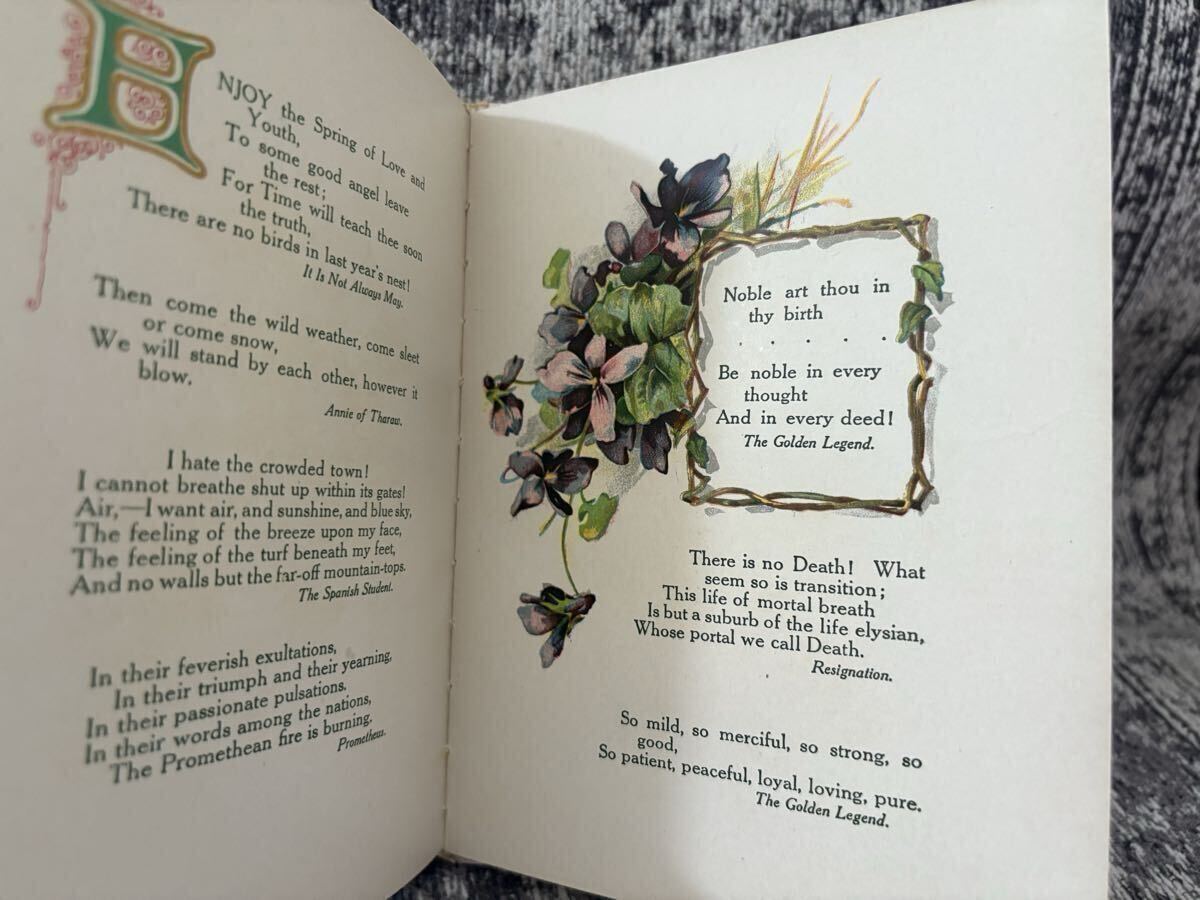 ENJOY the Spring of Love and
Youth,
To some good angel leave
the rest;
For Time will teach thee soon
the truth,
There are no birds in last year's nest!
It Is Not Always May.
Then come the wild weather, come sleet
or come snow,
We will stand by each other, however it
blow.
Annie of Tharaw.
I hate the crowded town!
I cannot breathe shut up within its gates!
Air,—I want air, and sunshine, and blue sky,
The feeling of the breeze upon my face,
The feeling of the turf beneath my feet,
And no walls but the far-off mountain-tops.
The Spanish Student.
In their feverish exultations,
In their triumph and their yearning,
In their passionate pulsations.
In their words among the nations,
The Promethean fire is burning.
Prometheus.
Noble art thou in
thy birth
. . . . . .
Be noble in every
thought
And in every deed!
The Golden Legend.
There is no Death! What
seem so is transition;
This life of mortal breath
Is but a suburb of the life elysian,
Whose portal we call Death.
Resignation.
So mild, so merciful, so strong, so
good,
So patient, peaceful, loyal, loving, pure.
The Golden Legend.